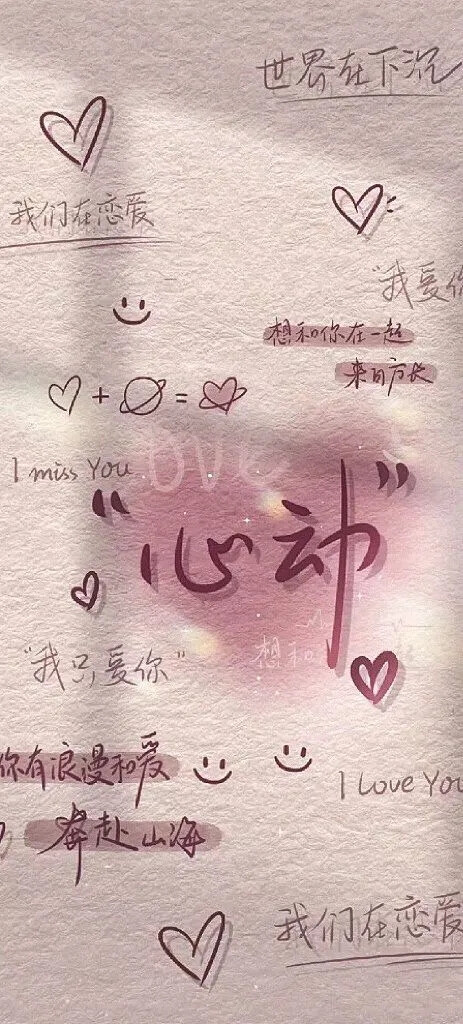 世界在下沉
我们在恋爱
"我爱你
想和你在一起
来日方长
+ =
I miss You
Love
"心动"
"我只爱你"
想和
你有浪漫和爱
I Love You
奔赴山海
我们在恋爱